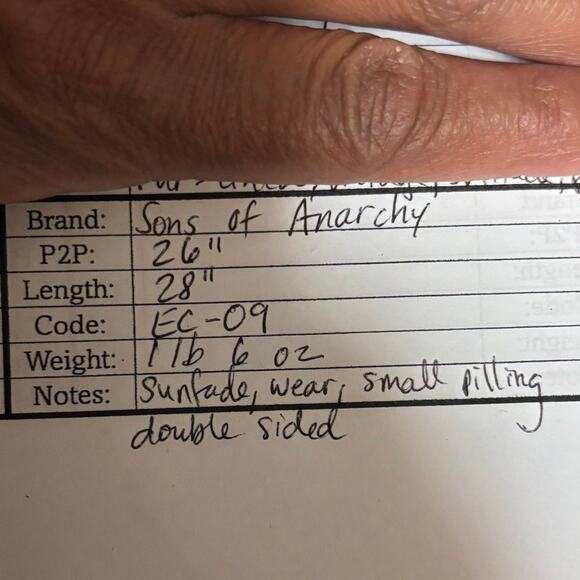 Brand: Sons of Anarchy
P2P: 26"
Length: 28"
Code: EC-09
Weight: 1 lb 6 oz
Notes: Sunfade, wear, small pilling
double sided